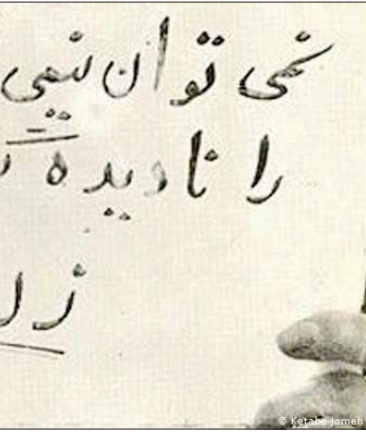 نمی توان نیمی
را نادیده
© Ketabe Jomeh